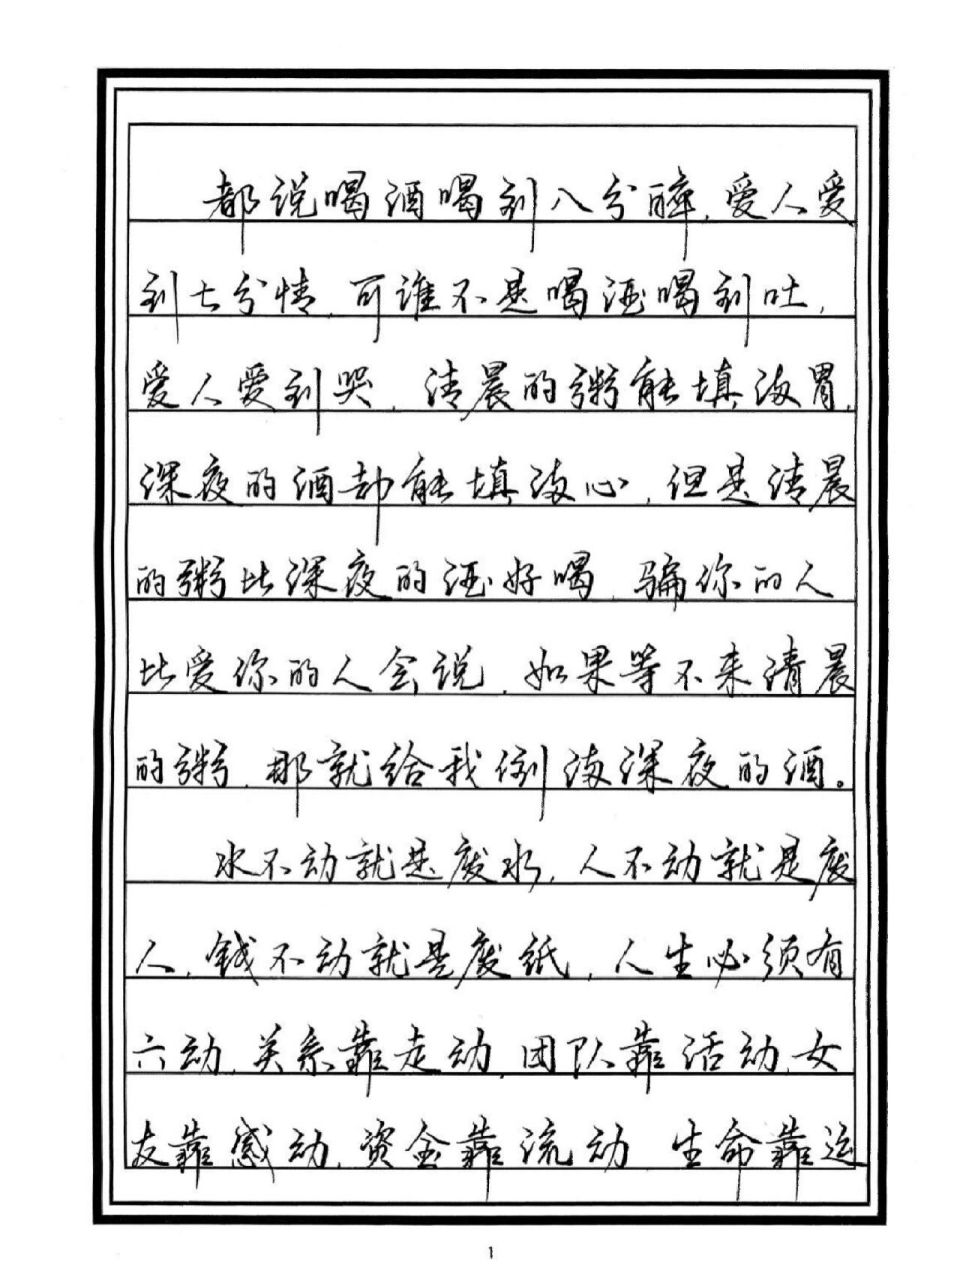 都说喝酒喝到八分醉,爱人爱
到七分情,可谁不是喝酒喝到吐,
爱人爱到哭,清晨的粥能填满胃,
深夜的酒却能填满心,但是清晨
的粥比深夜的酒好喝,骗你的人
比爱你的人会说,如果等不来清晨
的粥,那就给我倒满深夜的酒。
水不动就是废水,人不动就是废
人,钱不动就是废纸,人生必须有
六动,关系靠走动,团队靠活动,女
友靠感动,资金靠流动 生命靠运
1